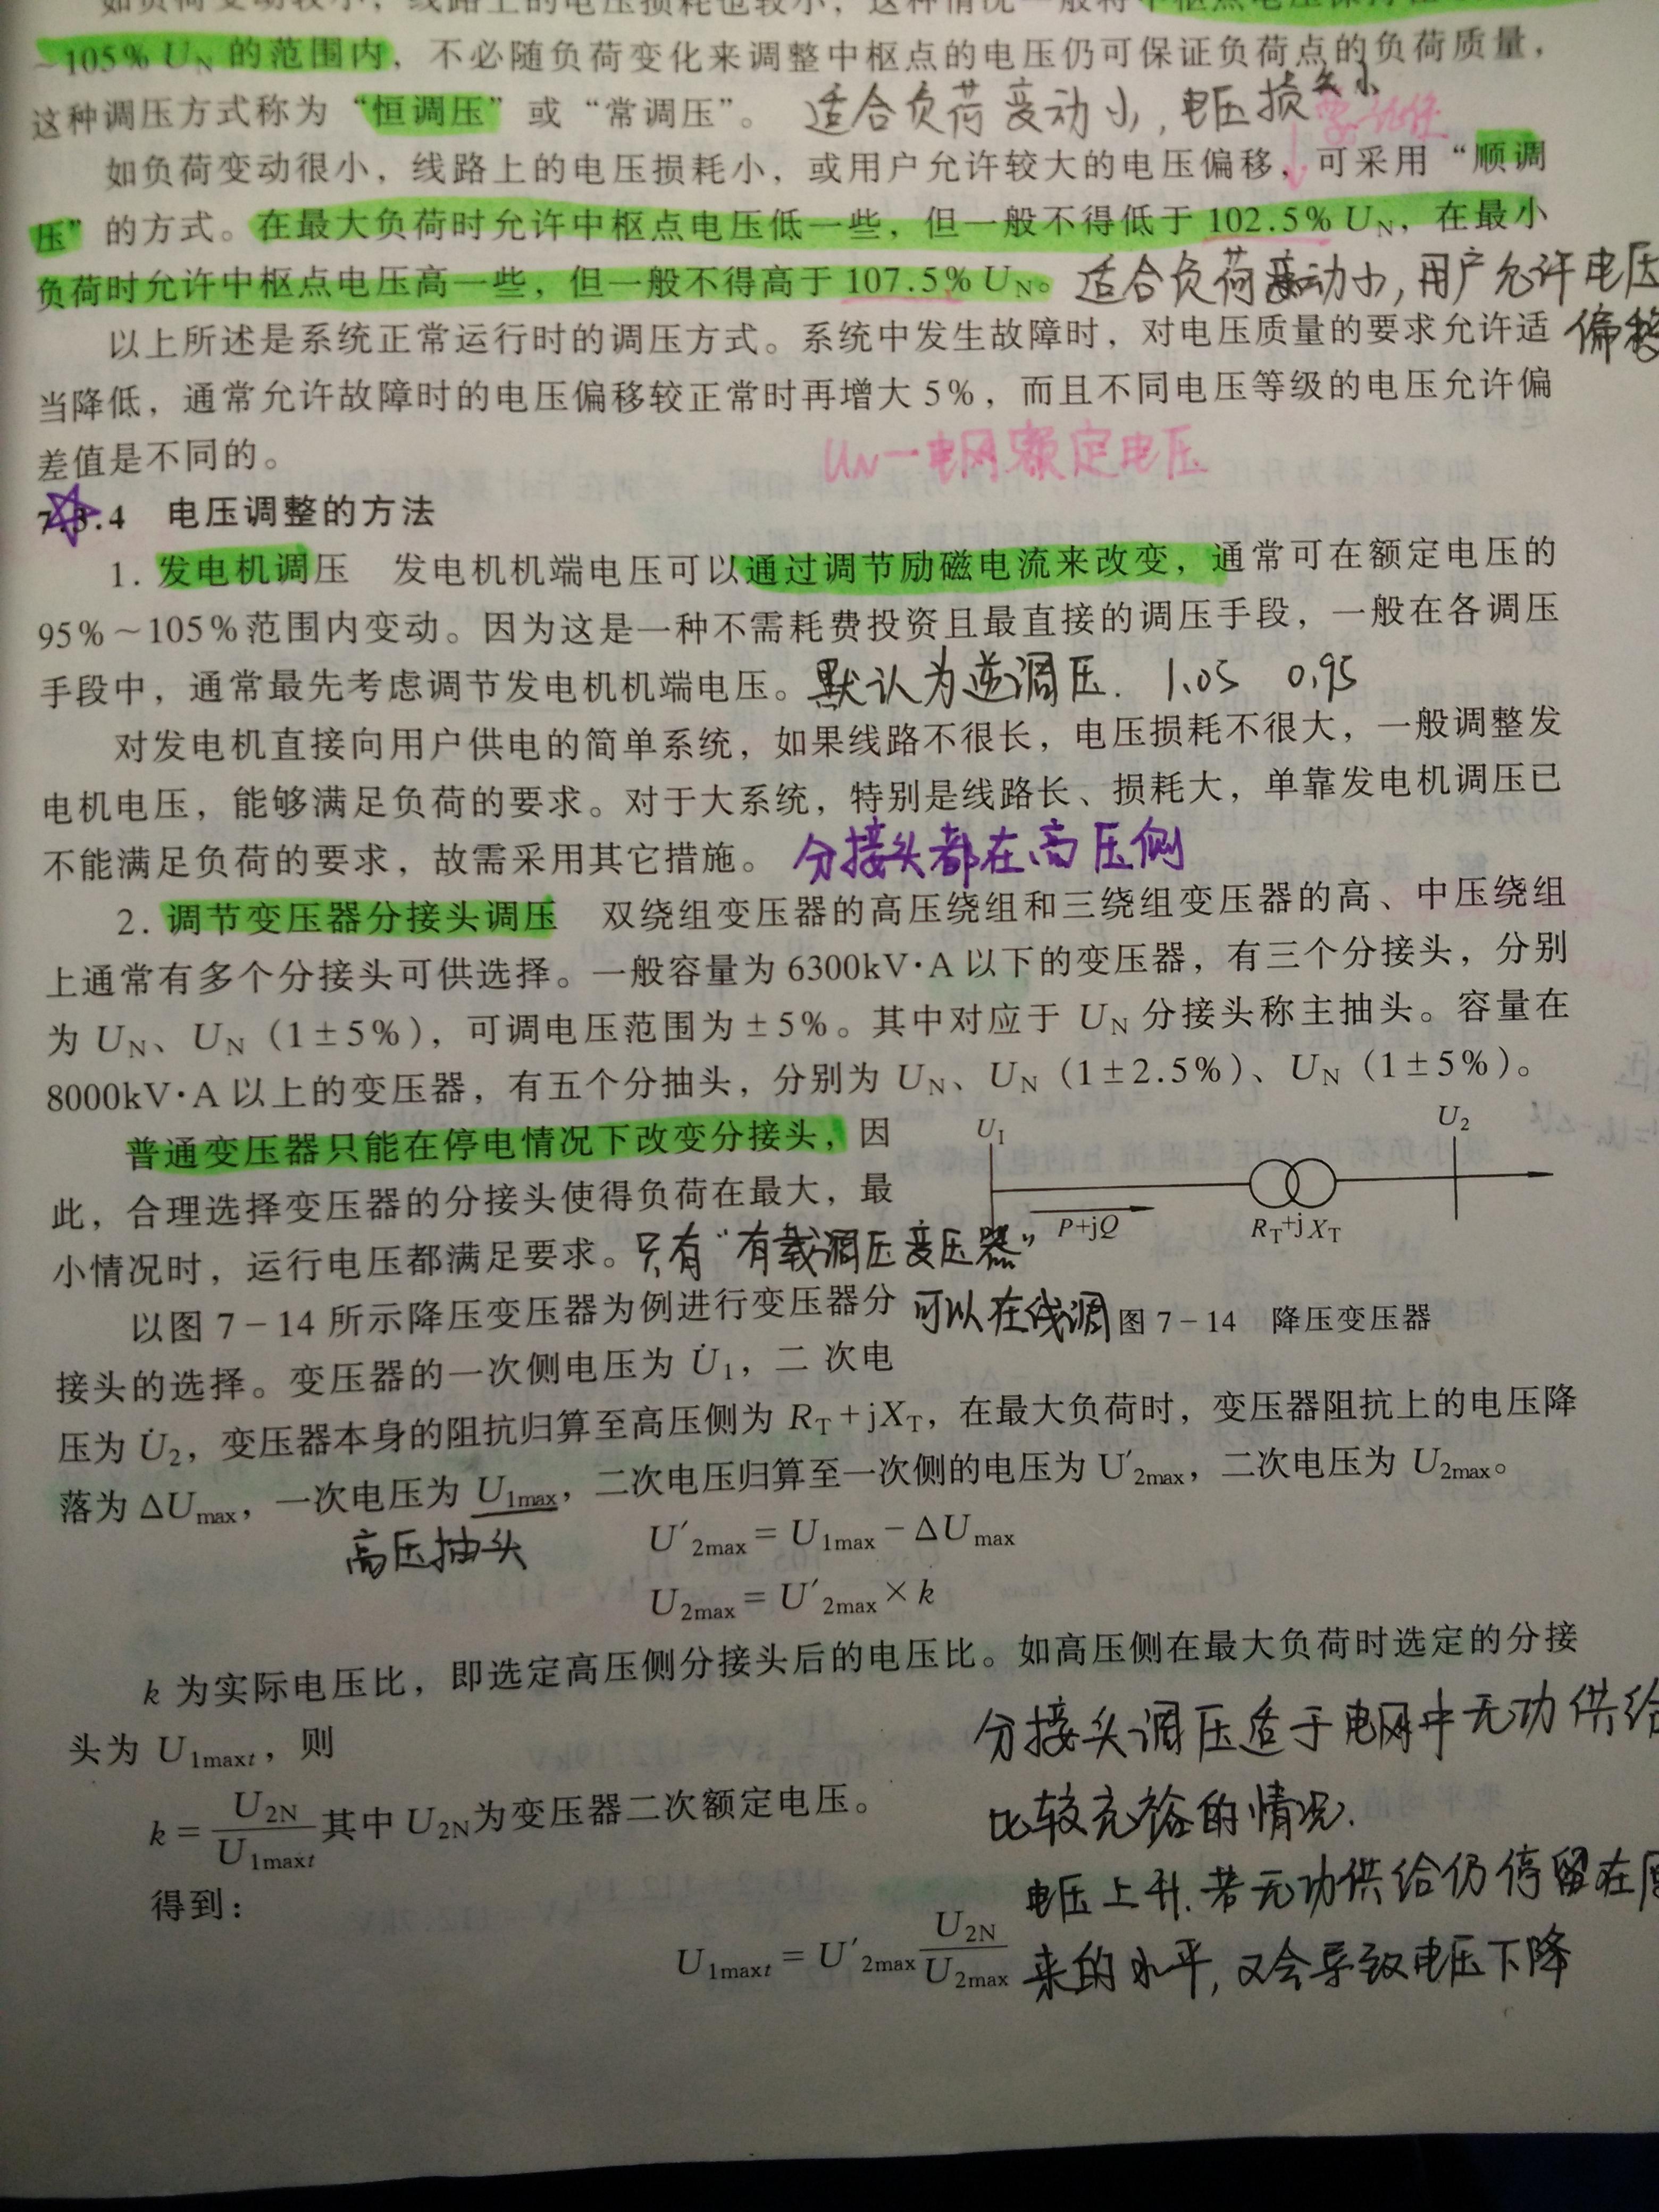 如负荷变动较小，线路上的电压损耗也较小，这种情况一般将中枢点电压保持在
~105% UN 的范围内，不必随负荷变化来调整中枢点的电压仍可保证负荷点的负荷质量，
这种调压方式称为“恒调压”或“常调压”。 适合负荷变动小，电压损失小
如负荷变动很小，线路上的电压损耗小，或用户允许较大的电压偏移，可采用“顺调
压”的方式。在最大负荷时允许中枢点电压低一些，但一般不得低于 102.5% UN，在最小
负荷时允许中枢点电压高一些，但一般不得高于 107.5% UN。 适合负荷变动小，用户允许电压
偏移
以上所述是系统正常运行时的调压方式。系统中发生故障时，对电压质量的要求允许适
当降低，通常允许故障时的电压偏移较正常时再增大 5%，而且不同电压等级的电压允许偏
差值是不同的。
UN—电网额定电压
7.3.4 电压调整的方法
1. 发电机调压 发电机机端电压可以通过调节励磁电流来改变，通常可在额定电压的
95%～105%范围内变动。因为这是一种不需耗费投资且最直接的调压手段，一般在各调压
手段中，通常最先考虑调节发电机机端电压。 默认为逆调压. 1.05 0.95
对发电机直接向用户供电的简单系统，如果线路不很长，电压损耗不很大，一般调整发
电机电压，能够满足负荷的要求。对于大系统，特别是线路长、损耗大，单靠发电机调压已
不能满足负荷的要求，故需采用其它措施。 分接头都在高压侧
2. 调节变压器分接头调压 双绕组变压器的高压绕组和三绕组变压器的高、中压绕组
上通常有多个分接头可供选择。一般容量为 6300kV·A 以下的变压器，有三个分接头，分别
为 UN、UN（1±5%），可调电压范围为±5%。其中对应于 UN 分接头称主抽头。容量在
8000kV·A 以上的变压器，有五个分抽头，分别为 UN、UN（1±2.5%）、UN（1±5%）。
普通变压器只能在停电情况下改变分接头，因
此，合理选择变压器的分接头使得负荷在最大，最
小情况时，运行电压都满足要求。 只有“有载调压变压器”
可以在线调
U1
U2
P+jQ
RT+jXT
图 7-14 降压变压器
以图 7-14 所示降压变压器为例进行变压器分
接头的选择。变压器的一次侧电压为 U̇1，二 次电
压为 U̇2，变压器本身的阻抗归算至高压侧为 RT+jXT，在最大负荷时，变压器阻抗上的电压降
落为 ΔUmax，一次电压为 U1max，二次电压归算至一次侧的电压为 U′2max，二次电压为 U2max。
高压抽头
U′2max = U1max − ΔUmax
U2max = U′2max × k
k 为实际电压比，即选定高压侧分接头后的电压比。如高压侧在最大负荷时选定的分接
头为 U1maxt，则
k = U2N / U1maxt 其中 U2N为变压器二次额定电压。
得到：
U1maxt = U′2max U2N / U2max
分接头调压适于电网中无功供给
比较充裕的情况.
电压上升.若无功供给仍停留在原
来的水平，又会导致电压下降